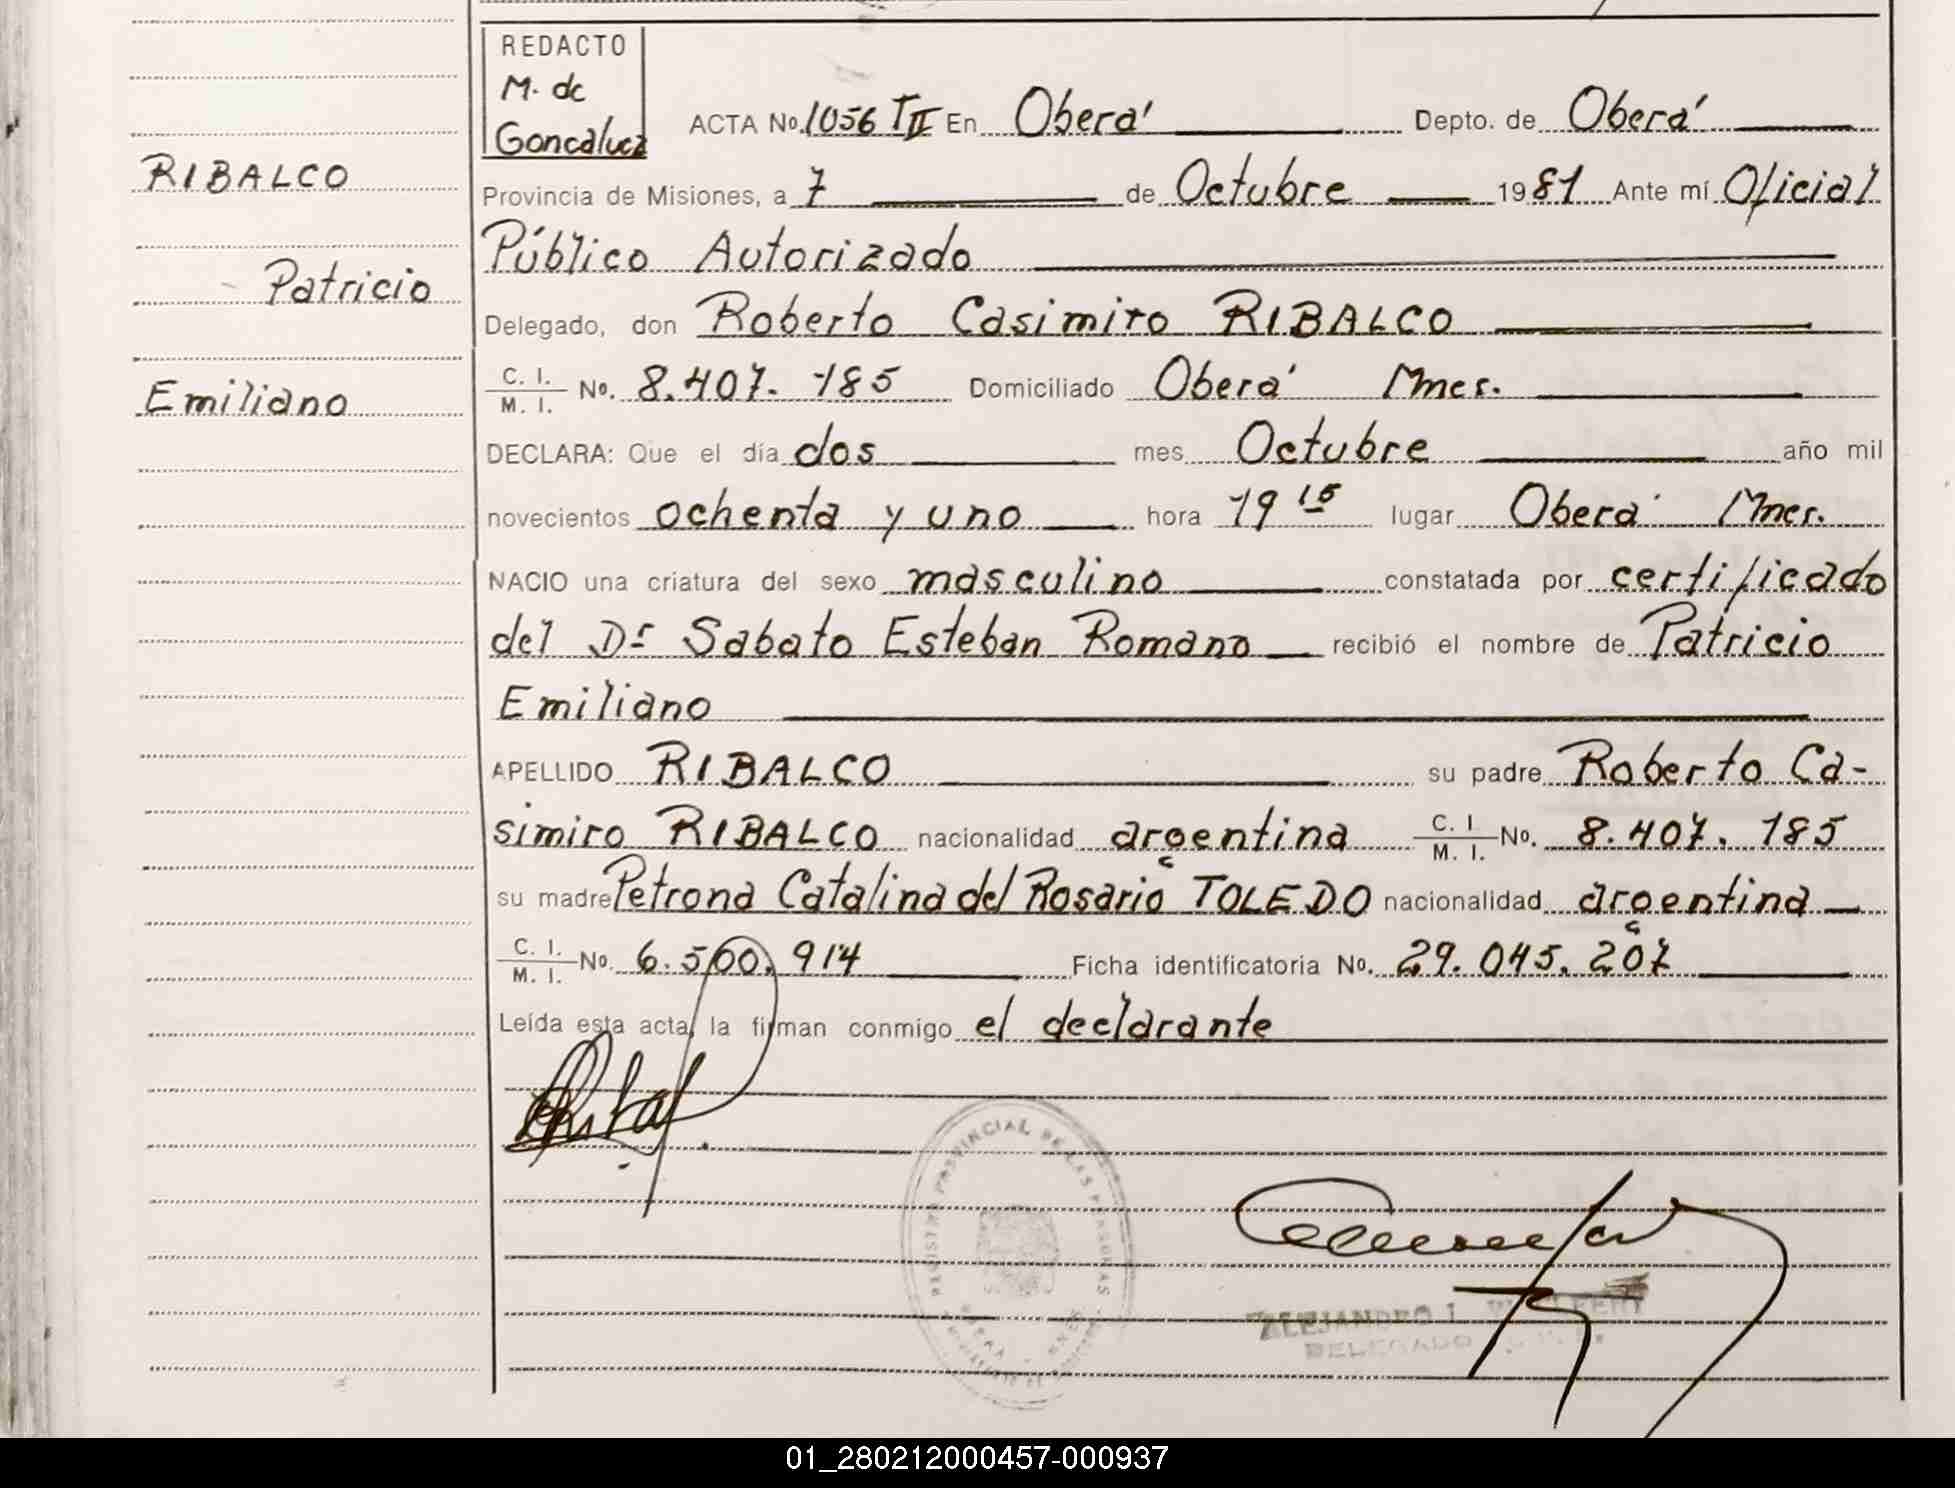 REDACTO
M. de
Goncaluez
ACTA No. 1056 TII En Oberá Depto. de Oberá
RIBALCO
Provincia de Misiones, a 7 de Octubre 1981 Ante mí Oficial
Público Autorizado
Patricio
Delegado, don Roberto Casimiro RIBALCO
Emiliano
C. I. / M. I. No. 8.407.185 Domiciliado Oberá Mnes.
DECLARA: Que el día dos mes Octubre año mil
novecientos ochenta y uno hora 19 15 lugar Oberá Mnes.
NACIO una criatura del sexo masculino constatada por certificado
del Dr Sabato Esteban Romano recibió el nombre de Patricio
Emiliano
APELLIDO RIBALCO su padre Roberto Ca-
simiro RIBALCO nacionalidad argentina C. I / M. I. No. 8.407.185
su madre Petrona Catalina del Rosario TOLEDO nacionalidad argentina
C. I. / M. I. No. 6.500.914 Ficha identificatoria No. 29.045.207
Leída esta acta, la firman conmigo el declarante
REGISTRO PROVINCIAL DE LAS PERSONAS
ALEJANDRO I.
DELEGADO
01_280212000457-000937